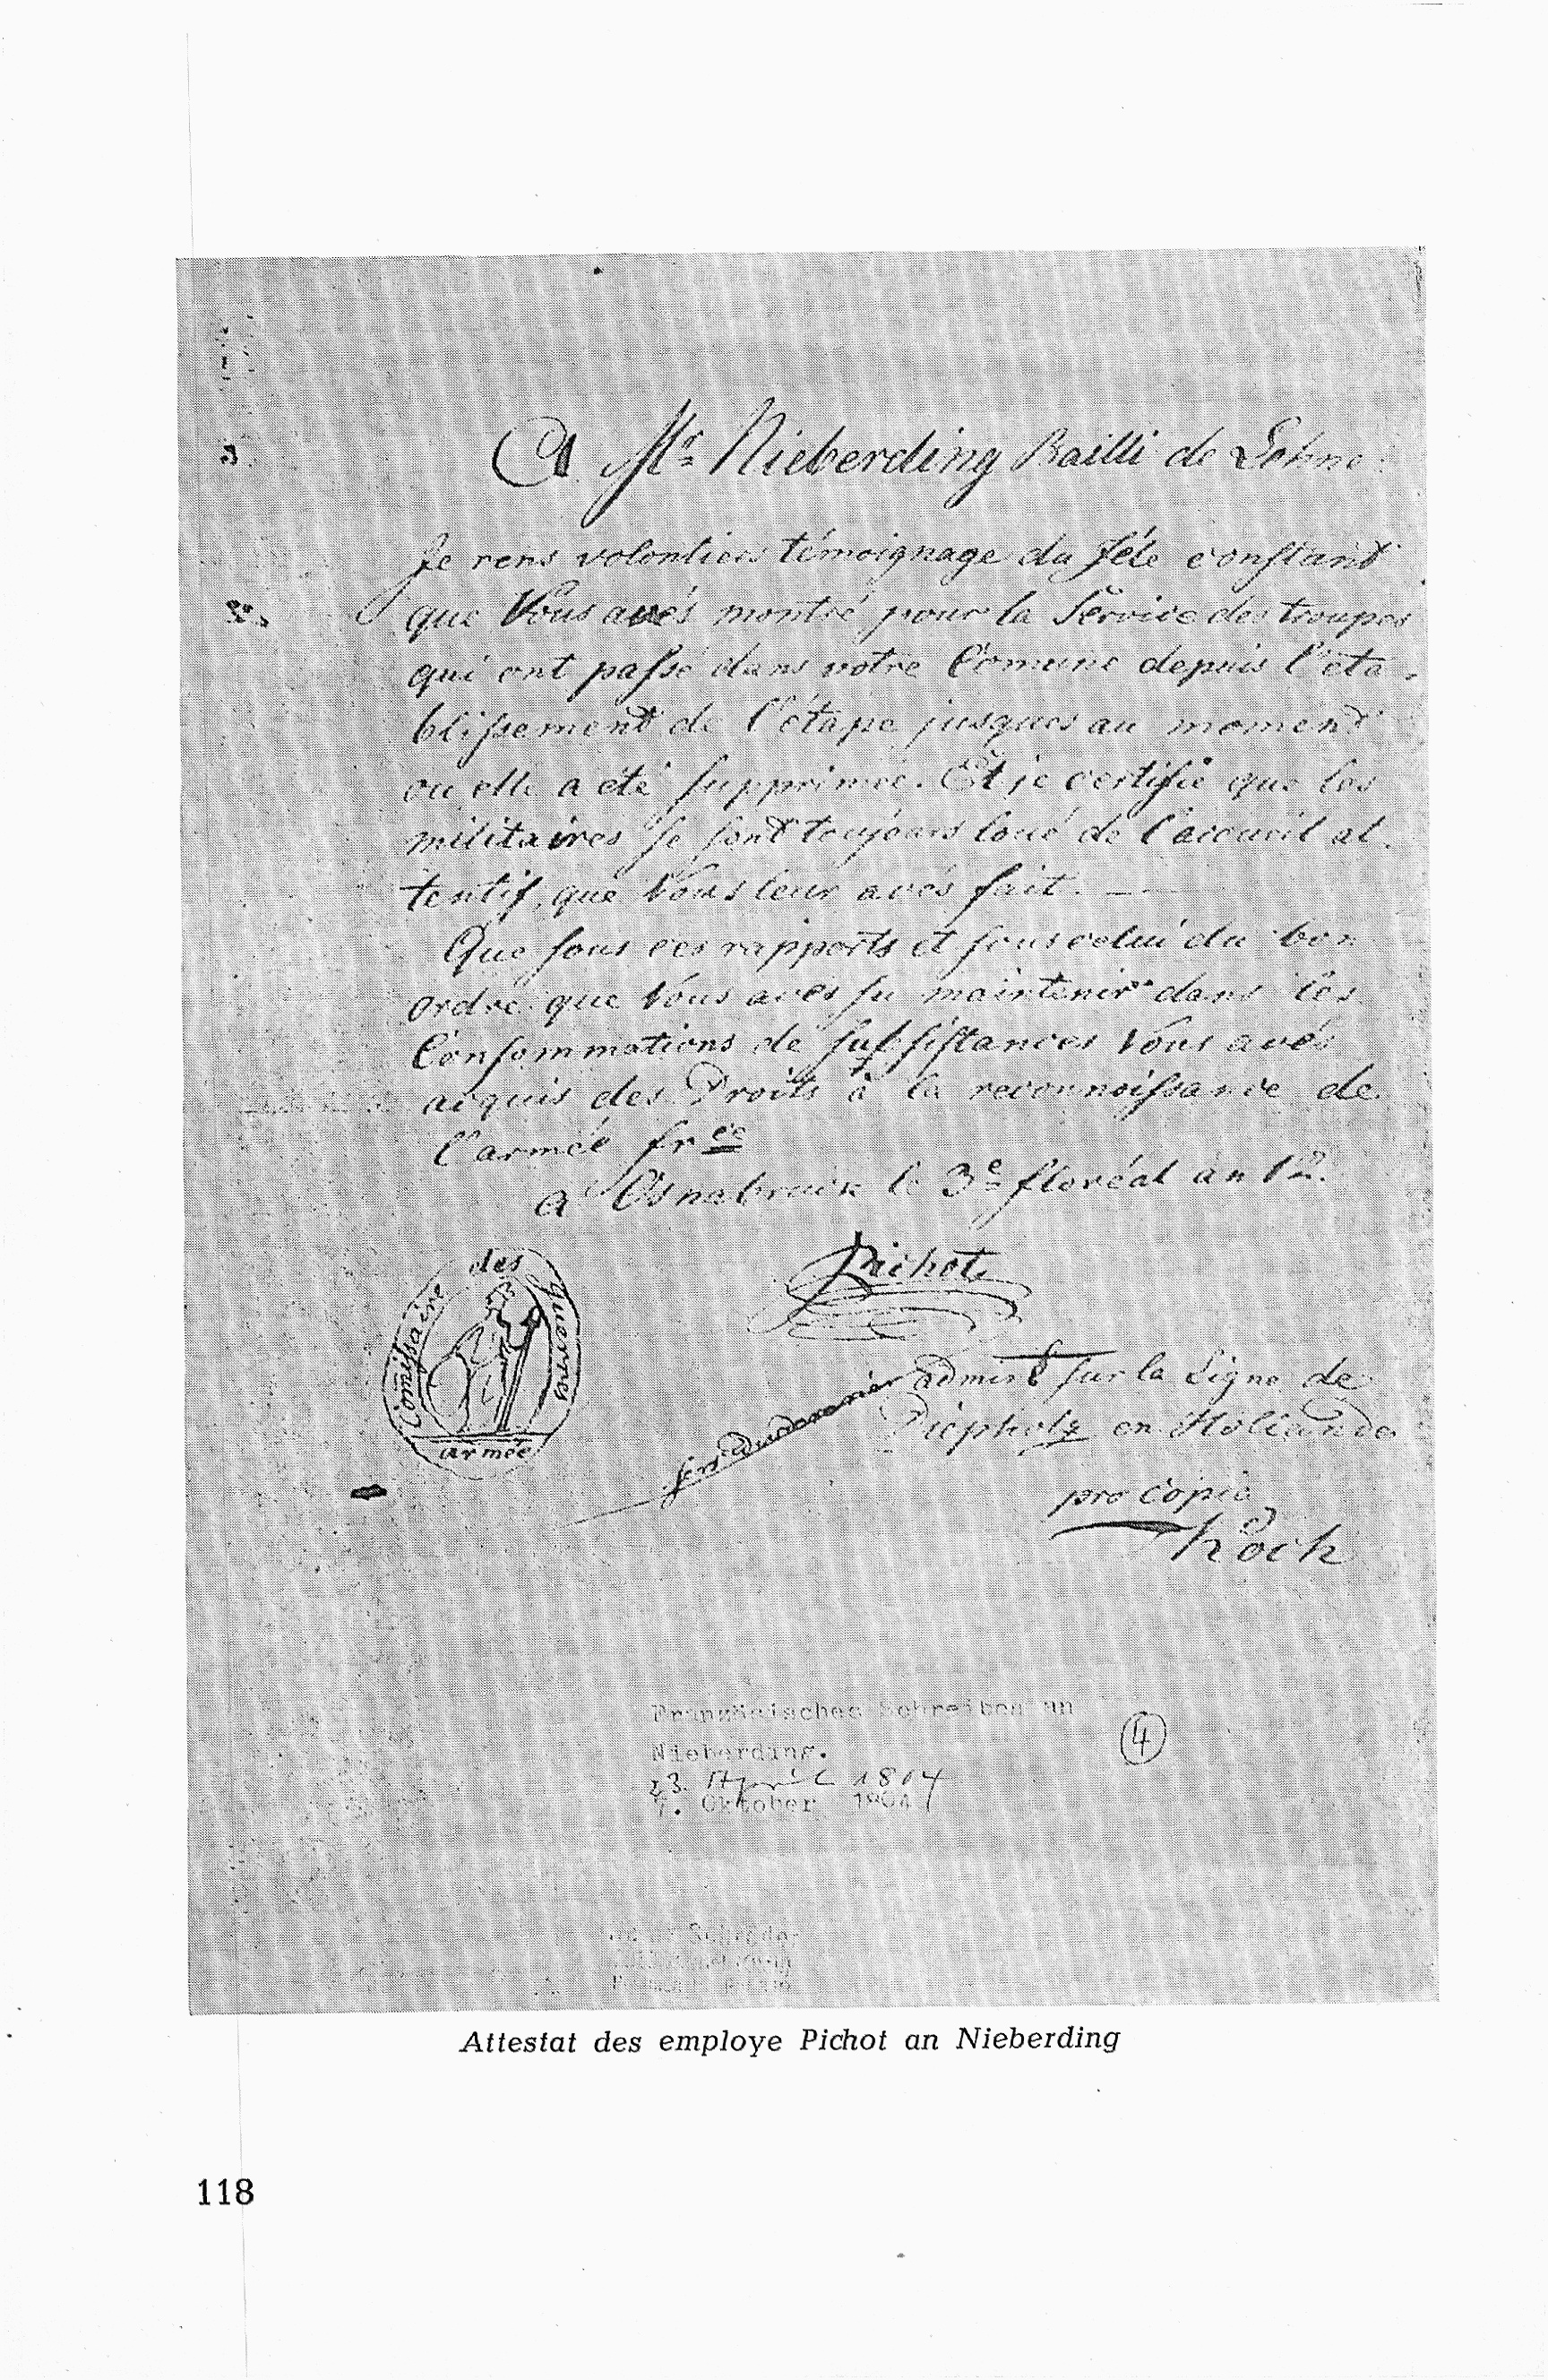 A Mr Nieberding Bailli de Lohne
Je rens volontiers témoignage du zéle constant
que Vous avés montré pour la Service des troupes
qui ont passé dans votre Comune depuis l'éta-
blissement de l'étape jusques au moment
ou elle a été supprimée. Et je certifie que les
militaires se sont toujours loué de l'acceuil at-
tentif, que Vous leur avés fait. —
Que sous ces rapports et sous celui du bon
ordre que Vous avés su maintenir dans les
Consommations de subsistances Vous avés
acquis des Droits à la reconnoissance de
l'armée frce
a Osnabruck le 3e floréal an 12.
Comissaire des guerres
armée
Pichot
admis sur la Ligne de
Diepholz en Hollande
pro copia
Koch
Französisches Schreiben an
Nieberding.
4
23. April 1804
7. Oktober 1804
Attestat des employe Pichot an Nieberding
118